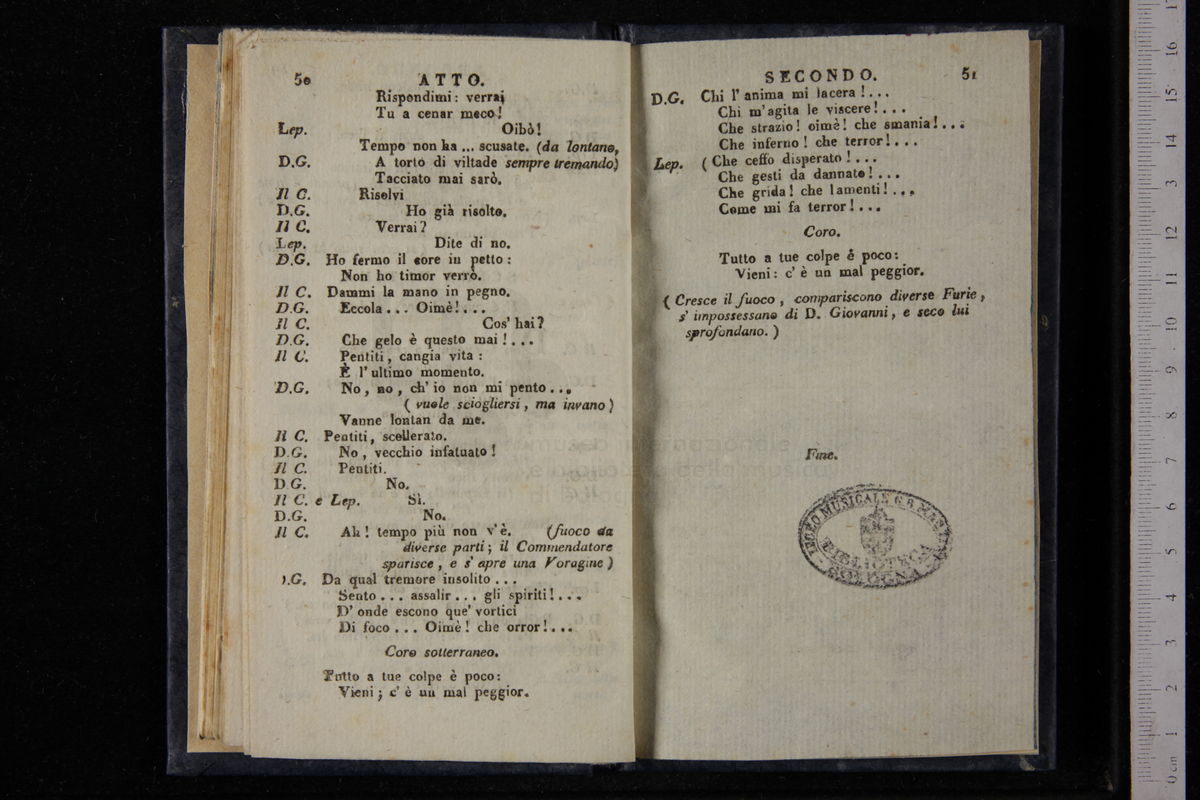 50 ATTO.
Rispondimi: verrai
Tu a cenar meco!
Lep. Oibò!
Tempo non ha ... scusate. (da lontano,
D.G. A torto di viltade sempre tremando)
Tacciato mai sarò.
Il C. Risolvi
D.G. Ho già risolto.
Il C. Verrai?
Lep. Dite di no.
D.G. Ho fermo il core in petto:
Non ho timor verrò.
Il C. Dammi la mano in pegno.
D.G. Eccola... Oimè!...
Il C. Cos' hai?
D.G. Che gelo è questo mai!...
Il C. Pentiti, cangia vita:
È l'ultimo momento.
D.G. No, no, ch' io non mi pento...
(vuole sciogliersi, ma invano)
Vanne lontan da me.
Il C. Pentiti, scellerato.
D.G. No, vecchio infatuato!
Il C. Pentiti.
D G. No.
Il C. e Lep. Sì.
D.G. No.
Il C. Ah! tempo più non v'è. (fuoco da
diverse parti; il Commendatore
sparisce, e s' apre una Voragine)
).G. Da qual tremore insolito...
Sento... assalir... gli spiriti!...
D' onde escono que' vortici
Di foco... Oimè! che orror!...
Coro sotterraneo.
Tutto a tue colpe è poco:
Vieni; c' è un mal peggior.
SECONDO. 51
D.G. Chi l' anima mi lacera!...
Chi m'agita le viscere!...
Che strazio! oimè! che smania!...
Che inferno! che terror!...
Lep. (Che ceffo disperato!...
Che gesti da dannato!...
Che grida! che lamenti!...
Come mi fa terror!...
Coro.
Tutto a tue colpe è poco:
Vieni: c' è un mal peggior.
(Cresce il fuoco, compariscono diverse Furie,
s' impossessano di D. Giovanni, e seco lui
sprofondano.)
Fine.
LICEO MUSICALE G.B. MARTINI
BIBLIOTECA
BOLOGNA